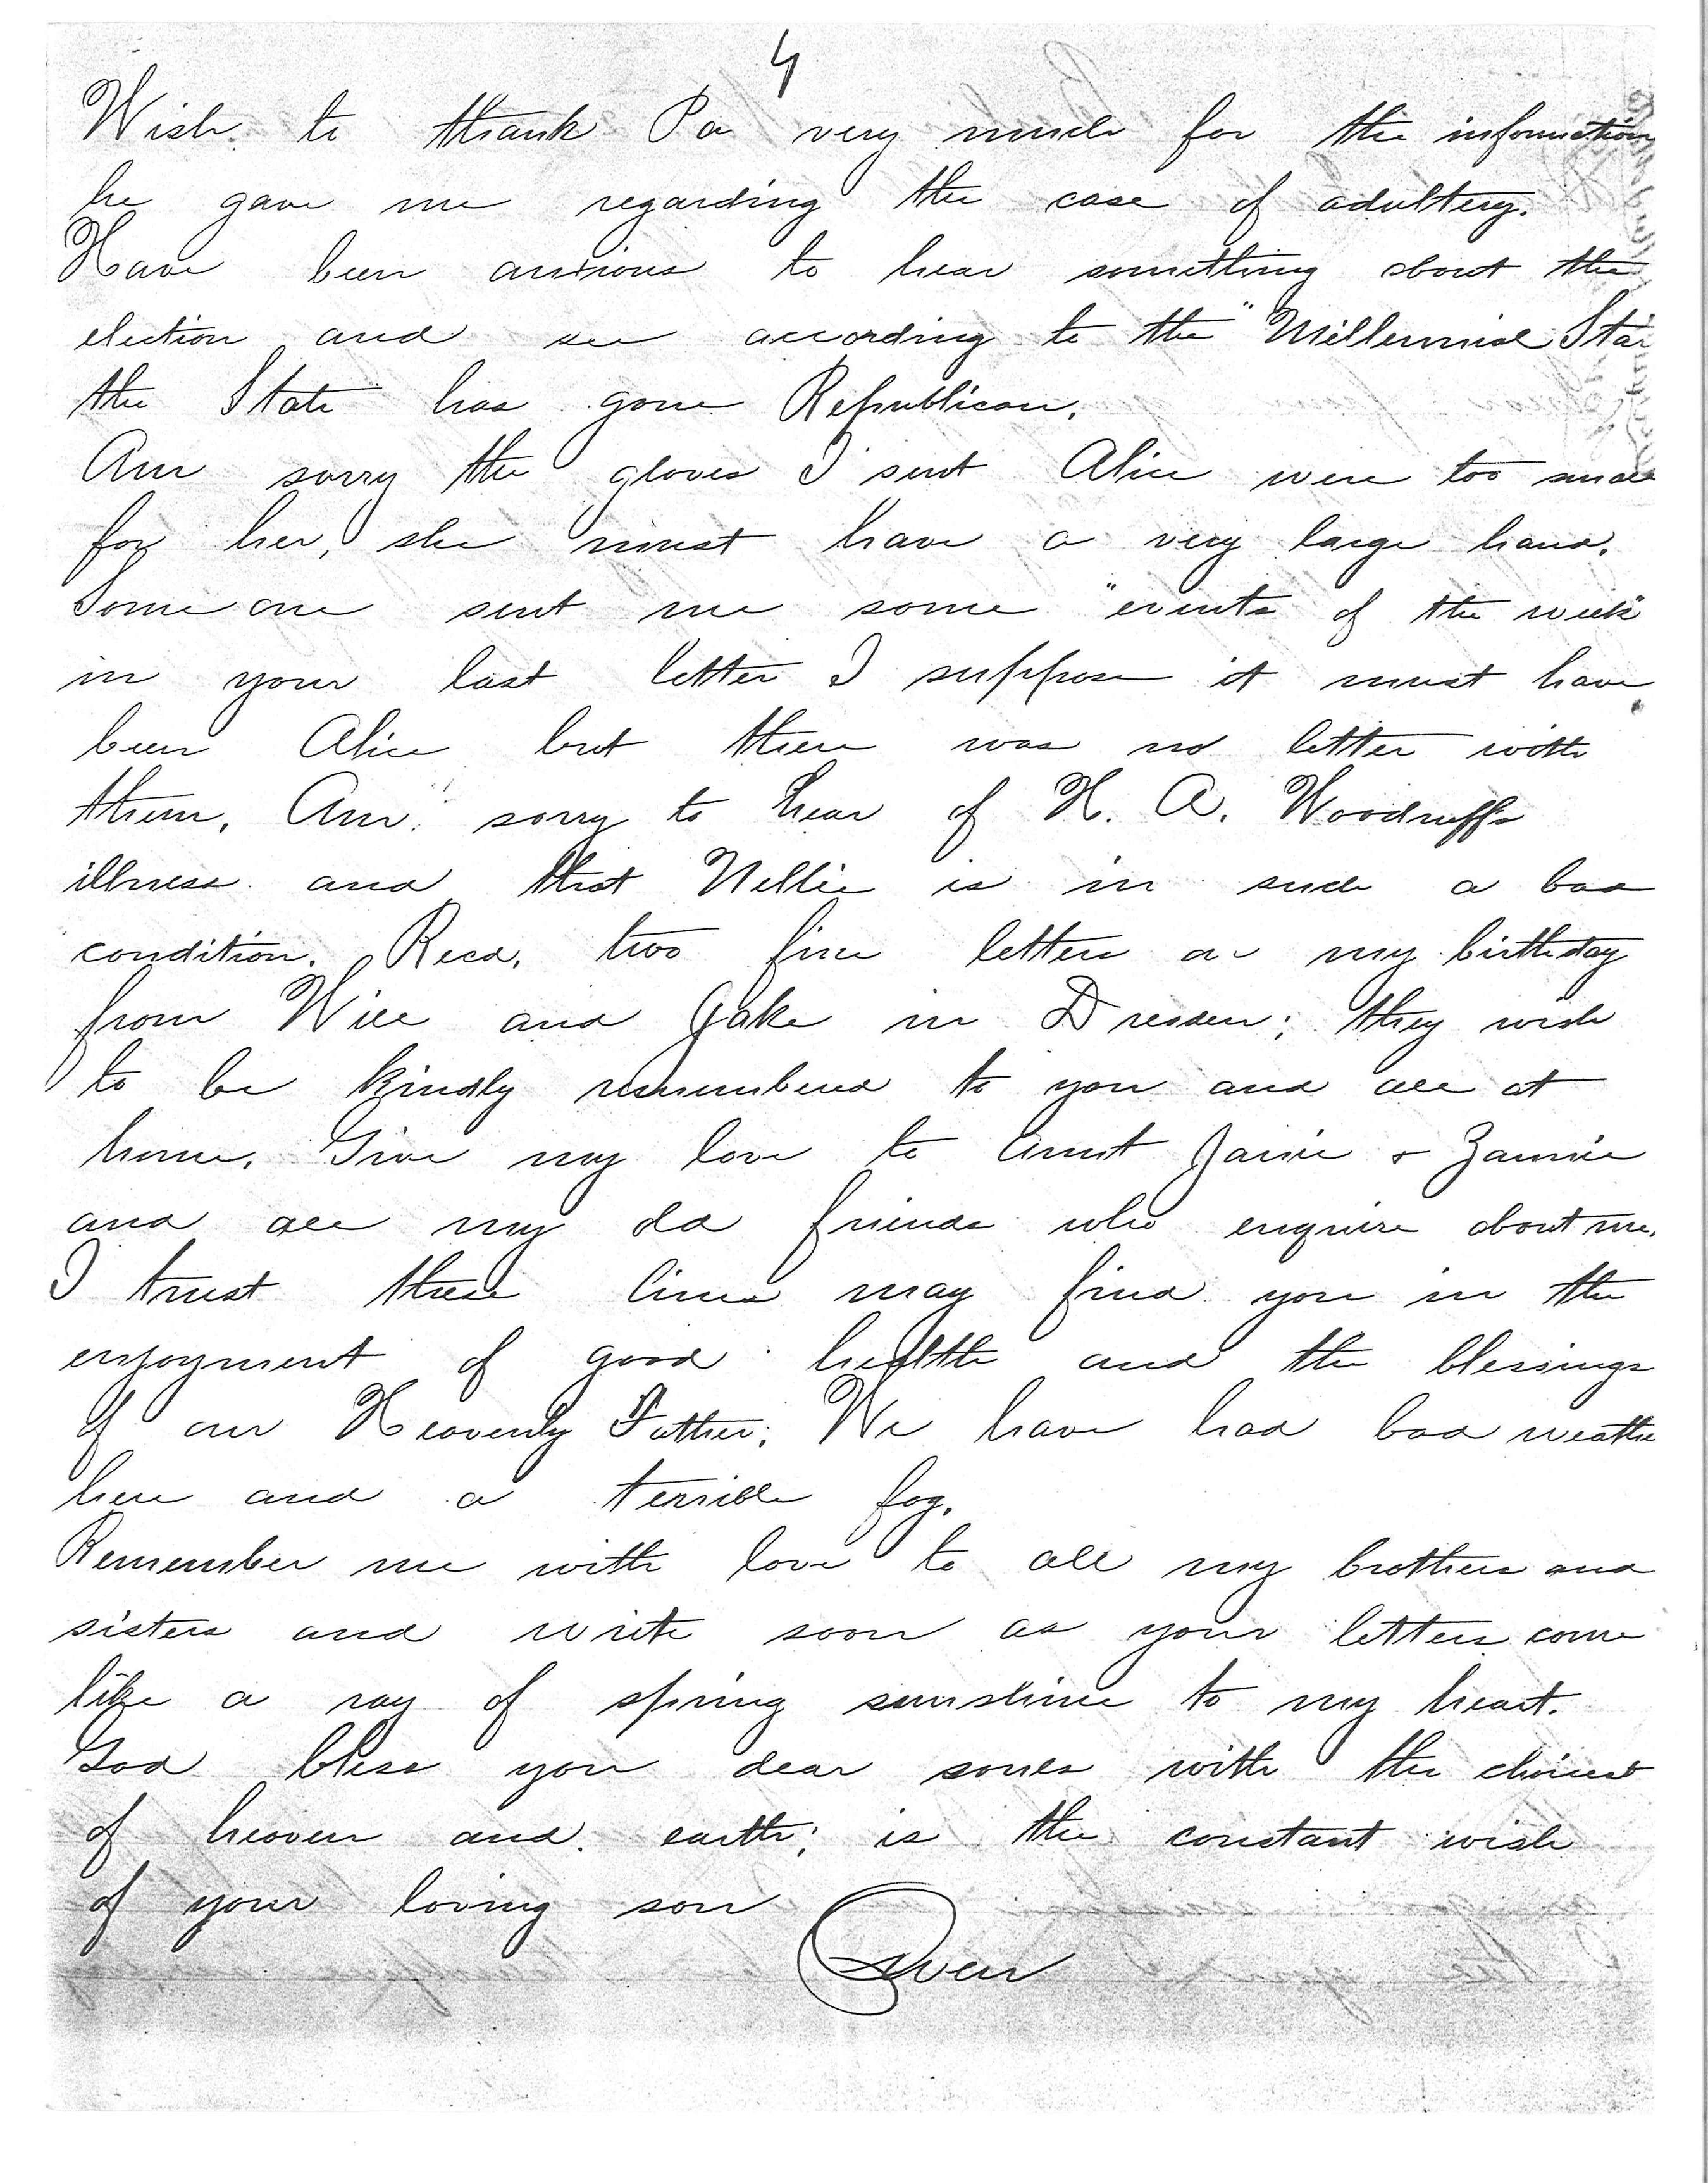 4
Wish to thank Pa very much for the information
he gave me regarding the case of adultery.
Have been anxious to hear something about the
election and see according to the "Millennial Star
the State has gone Republican.
Am sorry the gloves I sent Alice were too small
for her, she must have a very large hand.
Some one sent me some "events of the week"
in your last letter I suppose it must have
been Alice but there was no letter with
them. Am sorry to hear of H. A. Woodruff's
illness and that Nellie is in such a bad
condition. Recd. two fine letters on my birthday
from Will and Jake in Dresden; they wish
to be kindly remembered to you and all at
home. Give my love to Aunt Janie + Fannie
and all my old friends who enquire about me.
I trust these lines may find you in the
enjoyment of good health and the blessings
of our Heavenly Father; We have had bad weather
here and a terrible fog.
Remember me with love to all my brothers and
sisters and write soon as your letters come
like a ray of spring sunshine to my heart.
God bless you dear souls with the choicest
of heaven and earth; is the constant wish
of your loving son
Owen